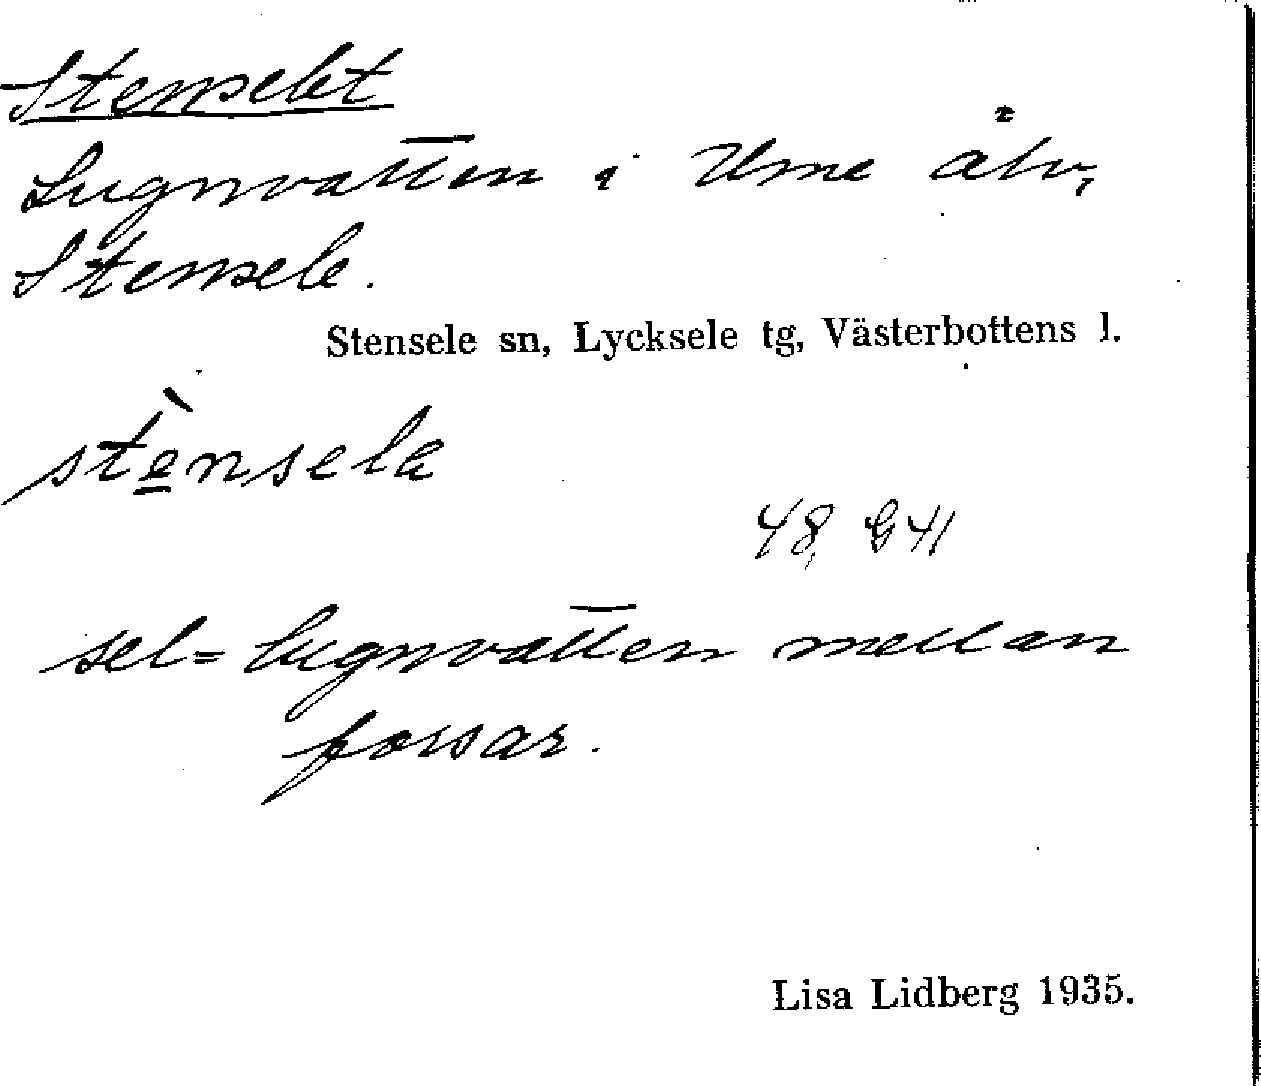 Stenselet
Lugnvatten i Ume älv,
Stensele.
Stensele sn, Lycksele tg, Västerbottens l.
stènsela
48, G 41
sel = lugnvatten mellan
forsar.
Lisa Lidberg 1935.